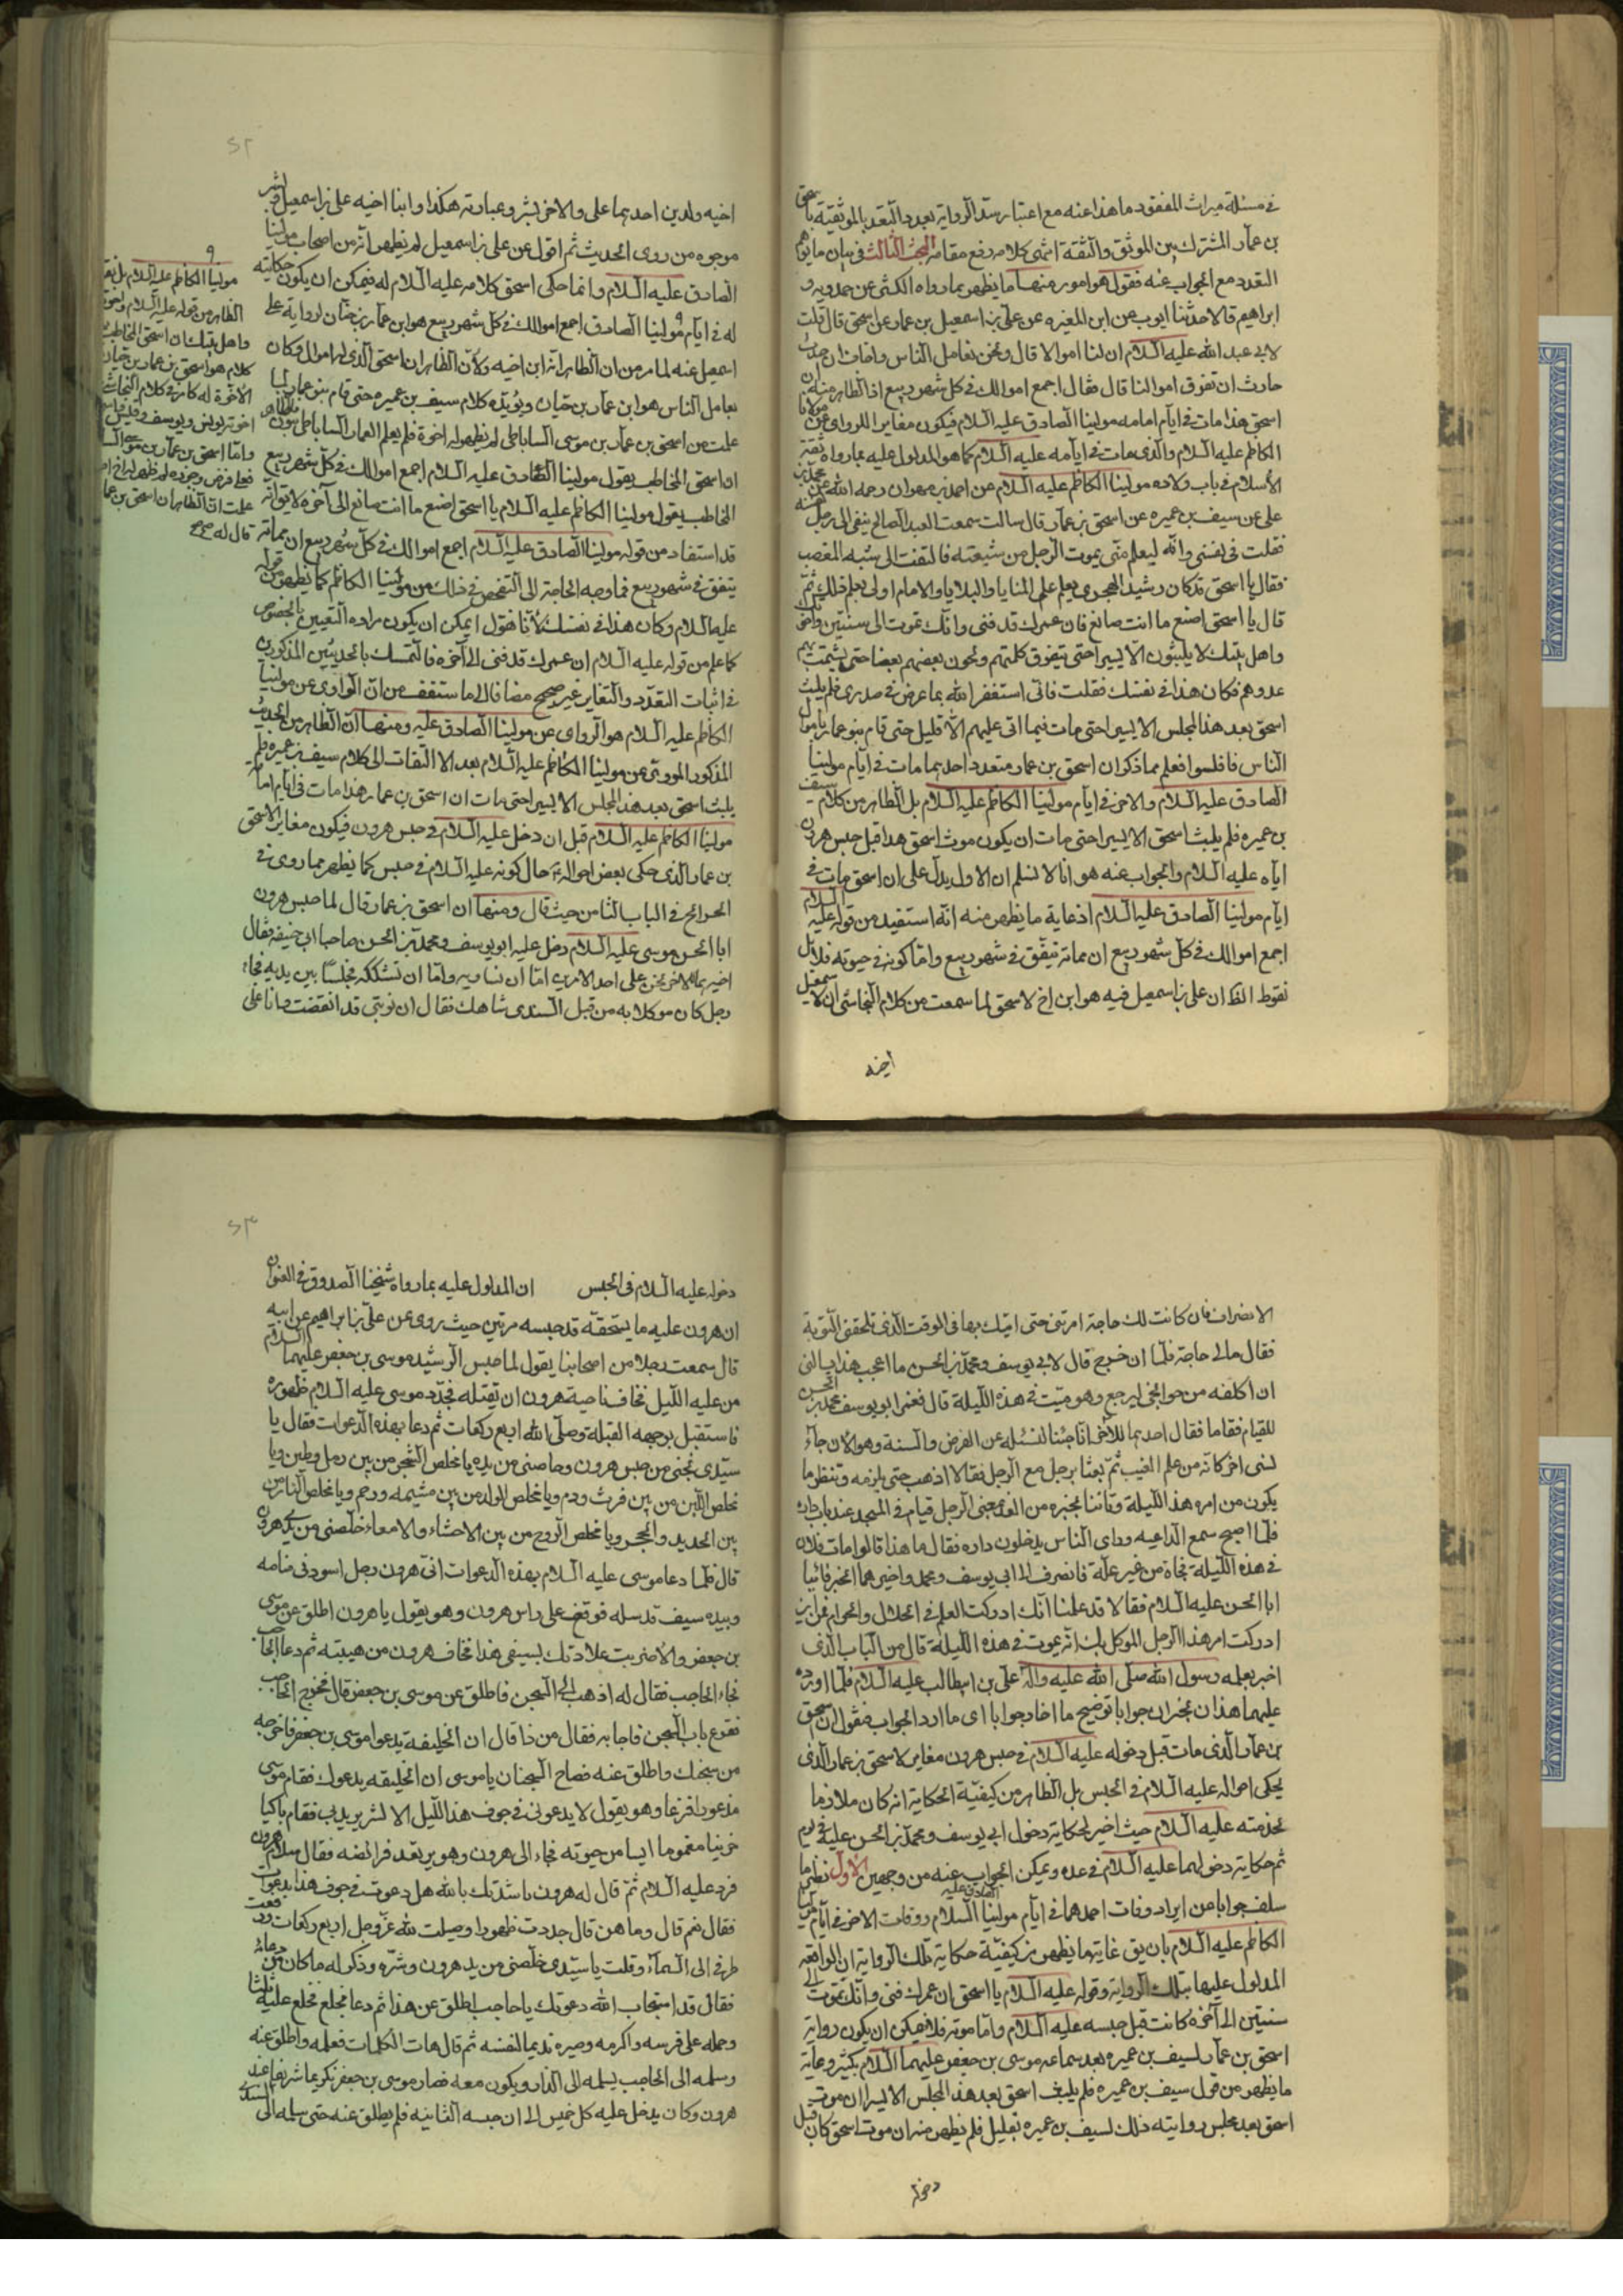 في مسئلة ميراث المفقود ما هذا عنه مع اعتبار سند الرواية بعد التقيد بالموثقية باسحق
بن عمار المشترك بين الموثق والثقة انتهى كلامه رفع مقامه البحث الثالث في بيان ما يوهم
التعدد مع الجواب عنه فنقول هو امور منها ما يظهر بما رواه الكشي عن حمدويه و
ابراهيم قالا حدثنا ايوب عن ابن المغيره عن علي بن اسمعيل بن عمار عن اسحق قال قلت
لابي عبد الله عليه السلام ان لنا اموالا قال ونحن نعامل الناس واخاف ان حدث
حادث ان تفرق اموالنا قال فقال اجمع اموالك في كل شهر ربيع اذ الظاهر منه ان
اسحق هذا مات في ايام امامه مولينا الصادق عليه السلام فيكون مغاير للراوي عن مولانا
الكاظم عليه السلام والذي مات في ايامه عليه السلام كما هو المدلول عليه بما رواه ثقة
الأسلام في باب ولاده مولينا الكاظم عليه السلام عن احمد بن مهران رحمه الله عن محمد بن
علي عن سيف بن عميره عن اسحق بن عمار قال سالت سمعت العبد الصالح ينفي الى رجل نفسه
فقلت في نفسي وانه ليعلم متى يموت الرجل من شيعته فالتفت الي شبه المغضب
فقال يا اسحق قد كان رشيد الهجري يعلم علم المنايا والبلايا والامام اولى بعلم ذلك ثم
قال يا اسحق اصنع ما انت صانع فان عمرك قد فنى وانك تموت الى سنتين واخوتك
واهل بيتك لا يلبثون الا يسيرا حتى تتفرق كلمتهم ويخون بعضهم بعضا حتى يشمت بهم
عدوهم فكان هذا في نفسك فقلت فاني استغفر الله بما عرض في صدري فلم يلبث
اسحق بعد هذا المجلس الا يسيرا حتى مات فما اتى عليهم الا قليل حتى قام بنو عمار باموال
الناس فافلسوا فعلم مما ذكر ان اسحق بن عمار متعدد احدهما مات في ايام مولينا
الصادق عليه السلام والاخر في ايام مولينا الكاظم عليه السلام بل الظاهر من كلام سيف
بن عميره فلم يلبث اسحق الا يسيرا حتى مات ان يكون موت اسحق هذا قبل حبس هرون
اياه عليه السلام والجواب عنه هو انا لا نسلم ان الاول يدل على ان اسحق مات في
ايام مولينا الصادق عليه السلام اذ غاية ما يظهر منه انه استفيد من قوله عليه السلام
اجمع اموالك في كل شهر ربيع ان مماته يتفق في شهر ربيع واما كونه في حيوته فلا بل
نقوط الظ ان علي بن اسمعيل فيه هو ابن اخ لاسحق لما سمعت من كلام النجاشي ان لاسمعيل
اخيه
اخيه ولدين احدهما علي والاخر بشر وعبارته هكذا وابنا اخيه علي بن اسمعيل وبشر
موجوه من روى الحديث ثم اقول عن علي بن اسمعيل لم يظهر انه من اصحاب مولينا
الصادق عليه السلام وانما حكى اسحق كلامه عليه السلام له فيمكن ان يكون حكايته
له في ايام مولينا الصادق اجمع اموالك في كل شهر ربيع هو ابن عمار بن حيان لرواية علي
اسمعيل عنه لما مر من ان الظاهر انه ابن اخيه ولأن الظاهر ان اسحق الذي له اموال وكان
يعامل الناس هو ابن عمار بن حيان ويؤيده كلام سيف بن عميره حتى قام بنو عمار لما
علمت من اسحق بن عمار بن موسى الساباطي لم يظهر له اخوة فلم يعلم العمار الساباطي بنون
ان اسحق المخاطب بقول مولينا الصادق عليه السلام اجمع اموالك في كل شهر ربيع
المخاطب بقول مولينا الكاظم عليه السلام يا اسحق اصنع ما انت صانع الى آخره لا يق انه
قد استفاد من قوله مولينا الصادق عليه السلام اجمع اموالك في كل شهر ربيع ان مماته
يتفق في شهر ربيع فما وجه الحاجة الى التفحص في ذلك من مولينا الكاظم كما يظهر من قوله
عليه السلام وكان هذا في نفسك لأنا نقول يمكن ان يكون مراده التعيين بالخصوص
كما علم من قوله عليه السلام ان عمرك قد فنى الى آخره فالتمسك بالحديثين المذكورين
في اثبات التعدد والتغاير غير صحيح مضافا الى ما ستقف من ان الراوي عن مولينا
الكاظم عليه السلام هو الراوي عن مولينا الصادق عليه ومنها ان الظاهر من الحديث
المذكور المروي عن مولينا الكاظم عليه السلام بعد الالتفات الى كلام سيف بن عميره فلم
يلبث اسحق بعد هذا المجلس الا يسيرا حتى مات ان اسحق بن عمار هذا مات في ايام امامة
مولينا الكاظم عليه السلام قبل ان دخل عليه السلام في حبس هرون فيكون مغايرا لاسحق
بن عمار الذي حكى بعض احواله حال كونه عليه السلام في حبس كما يظهر مما روى في
الخرائج في الباب الثامن حيث قال ومنها ان اسحق بن عمار قال لما حبس هرون
ابا الحسن موسى عليه السلام دخل عليه ابو يوسف ومحمد بن الحسن صاحبا ابي حنيفه فقال
احدهما للاخر نحن على احد الامرين اما ان نساويه واما ان نشكله فجلسا بين يديه فجاء
رجل كان موكلا به من قبل السندي شاهك فقال ان نوبتي قد انقضت وانا على
مولينا الكاظم عليه السلام بل نقو
الظاهر من قوله عليه السلام واخوتك
واهل بيتك ان اسحق المخاطب
كلام هو اسحق بن عمار بن حيان
الاخوة له كما في كلام النجاشي
اخوته يونس ويوسف وقيس
واما اسحق بن عمار بن موسى
فعلى فرض وجوده لم يظهر له اخ
علمت ان الظاهر ان اسحق بن عمار
قال له صح
الانصراف فان كانت لك حاجة امرتني حتى اتيك بها في الوقت الذي تلحقني النوبة
فقال مالي حاجة فلما ان خرج قال لابي يوسف ومحمد بن الحسن ما اعجب هذا يسالني
ان اكلفه من حوائجي ليرجع وهو ميت في هذه الليلة قال فغمز ابو يوسف محمد بن الحسن
للقيام فقاما فقال احدهما للآخر انا جئنا لنسئله عن الفرض والسنة وهو الان جاء
لشئ اخر كانه من علم الغيب ثم بعثا برجل مع الرجل فقالا اذهب حتى تلزمه وتنظر ما
يكون من امره هذه الليلة وتاتينا بخبره من الغد فمضى الرجل قيام في المسجد عند باب داره
فلما اصبح سمع الداعيه وراى الناس يدخلون داره فقال ما هذا قالوا مات فلان
في هذه الليلة فجاة من غير علة فانصرف الى ابي يوسف ومحمد واخبرهما الخبر فاتيا
ابا الحسن عليه السلام فقالا قد علمنا انك ادركت العلم في الحلال والحرام فمن اين
ادركت امر هذا الرجل الموكل بك انه يموت في هذه الليلة قال من الباب الذي
اخبر بعلمه رسول الله صلى الله عليه وآله علي بن ابيطالب عليه السلام فلما اورد
عليهما هذا تحيرا لا يجيران جوابا توضيح ما احار جوابا اى ما رد الجواب فنقول ان اسحق
بن عمار الذي مات قبل دخوله عليه السلام في حبس هرون مغاير لاسحق بن عمار الذي
يحكى احواله عليه السلام في الحبس بل الظاهر من كيفية الحكاية انه كان ملازما
بخدمته عليه السلام حيث اخبر بحكاية دخول ابي يوسف ومحمد بن الحسن عليه في يوم
ثم حكاية دخولهما عليه السلام في غده ويمكن الجواب عنه من وجهين الاول نظير ما
سلف جوابا من ايراد وفات احدهما في ايام مولينا الصادق عليه السلام ووفات الاخر في ايام مولينا
الكاظم عليه السلام بان يق غاية ما يظهر من كيفية حكاية تلك الرواية ان الواقعه
المدلول عليها بتلك الرواية وقوله عليه السلام يا اسحق ان عمرك فنى وانك تموت الى
سنتين الى آخره كانت قبل حبسه عليه السلام واما موته فلا فيمكن ان يكون رواية
اسحق بن عمار لسيف بن عميره بعد سماعه موسى بن جعفر عليهما السلام بكثير وغاية
ما يظهر من قول سيف بن عميره فلم يلبث اسحق بعد هذا المجلس الا يسيرا ان موت
اسحق بعد مجلس روايته ذلك لسيف بن عميره بقليل فلم يظهر منه ان موت اسحق كان قبل
دخوله
دخوله عليه السلام في الحبس ان المدلول عليه بما رواه شيخنا الصدوق في العيون
ان هرون عليه ما يستحقه قد حبسه مرتين حيث روى عن علي بن ابراهيم عن ابيه
قال سمعت رجلا من اصحابنا يقول لما حبس الرشيد موسى بن جعفر عليهما السلام
من عليه الليل فخاف ناحية هرون ان يقتله فجدد موسى عليه السلام ظهوره
فاستقبل بوجهه القبلة وصلى لله اربع ركعات ثم دعا بهذه الدعوات فقال يا
سيدي نجني من حبس هرون وخلصني من يده يا مخلص الشجر من بين رمل وطين ويا
مخلص اللبن من بين فرث ودم ويا مخلص الولد من بين مشيمه ورحم ويا مخلص النار من
بين الحديد والحجر ويا مخلص الروح من بين الاحشاء والامعاء خلصني من يد هرون
قال فلما دعا موسى عليه السلام بهذه الدعوات اتى هرون رجل اسود في منامه
وبيده سيف قد سله فوقف على راس هرون وهو يقول يا هرون اطلق عن موسى
بن جعفر والا ضربت علاوتك بسيفي هذا فخاف هرون من هيبته ثم دعا الحاجب
فجاء الحاجب فقال له اذهب الى السجن فاطلق عن موسى بن جعفر قال فخرج الحاجب
فقرع باب السجن فاجابه فقال من ذا قال ان الخليفه يدعوا موسى بن جعفر فاخرجه
من سجنك واطلق عنه فصاح السجان يا موسى ان الخليفه يدعوك فقام موسى
مذعورا فزعا وهو يقول لا يدعوني في جوف هذا الليل الا لشر يريد بي فقام باكيا
حزينا مغموما ايسا من حيوته فجاء الى هرون وهو يرتعد فرائصه فقال سلام على هرون
فرد عليه السلام ثم قال له هرون ناشدتك بالله هل دعوت في جوف هذا بدعوات
فقال نعم قال وما هن قال جددت ظهورا وصليت لله عز وجل اربع ركعات ورفعت
طرفي الى السماء وقلت يا سيدي خلصني من يد هرون وشره وذكر له ما كان من دعائه
فقال قد استجاب الله دعوتك يا حاجب اطلق عن هذا ثم دعا بخلع فخلع عليه ثلثا
وحمله على فرسه واكرمه وصيره نديما لنفسه ثم قال هات الكلمات فعلمه واطلق عنه
وسلمه الى الحاجب يسلمه الى الدار ويكون معه فصار موسى بن جعفر كريما شريفا عند
هرون وكان يدخل عليه كل خميس الى ان حبسه الثانيه فلم يطلق عنه حتى سلمه الى السندي